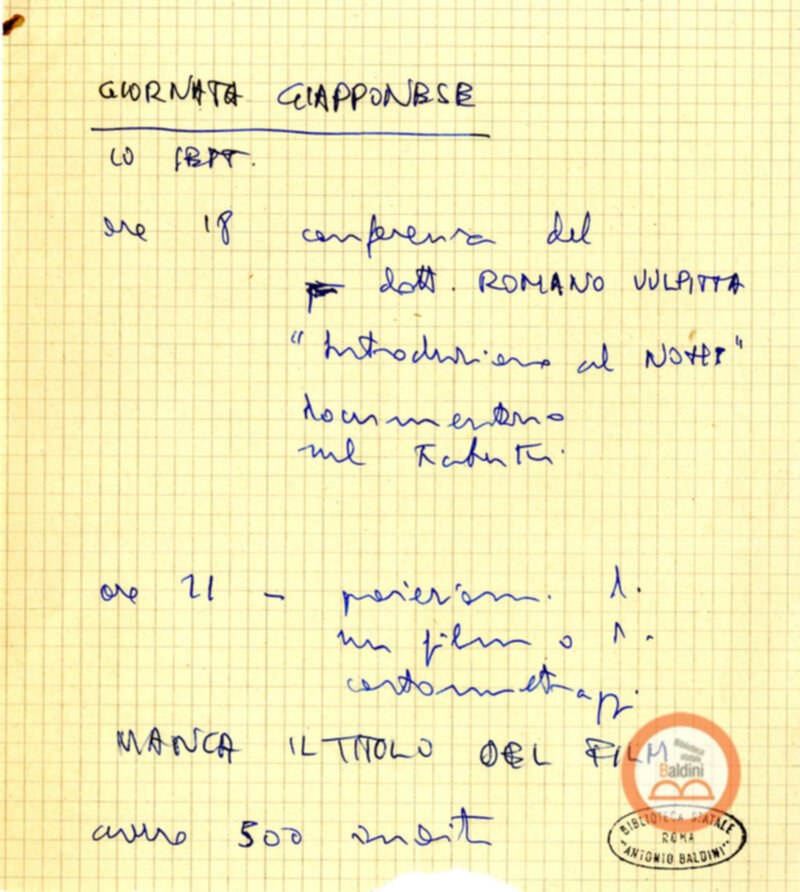 GIORNATA GIAPPONESE
10 SETT.
ore 18 conferenza del
dott. ROMANO VULPITTA
"Introduzione al NOH"
documentario
sul Kabuki
ore 21 - proiezioni di
un film o di
cortometraggi
MANCA IL TITOLO DEL FILM
avremo 500 inviti
Biblioteca
statale
Baldini
BIBLIOTECA STATALE
ROMA
"ANTONIO BALDINI"